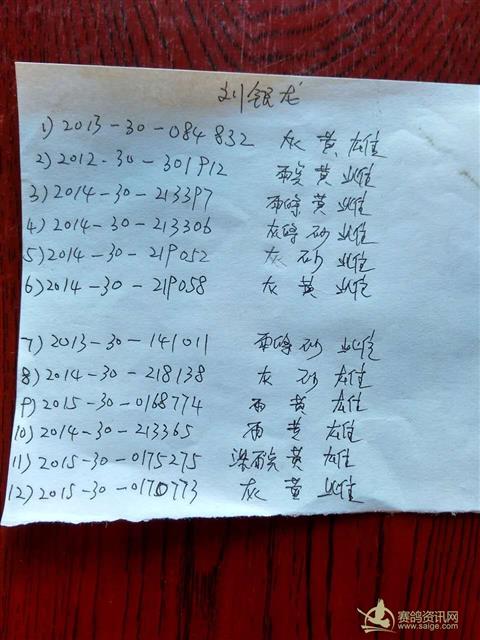 刘银龙
1) 2013-30-084832 灰 黄 雄
2) 2012-30-301912 雨 黄 雌
3) 2014-30-213397 雨 黄 雌
4) 2014-30-213306 灰 砂 雌
5) 2014-30-219052 灰 砂 雌
6) 2014-30-219058 灰 黄 雌
7) 2013-30-141011 雨 砂 雌
8) 2014-30-218138 灰 砂 雄
9) 2015-30-0168774 雨 黄 雄
10) 2014-30-213365 雨 黄 雄
11) 2015-30-0175275 深雨 黄 雄
12) 2015-30-0170773 灰 黄 雌
赛鸽资讯网
www.saige.com